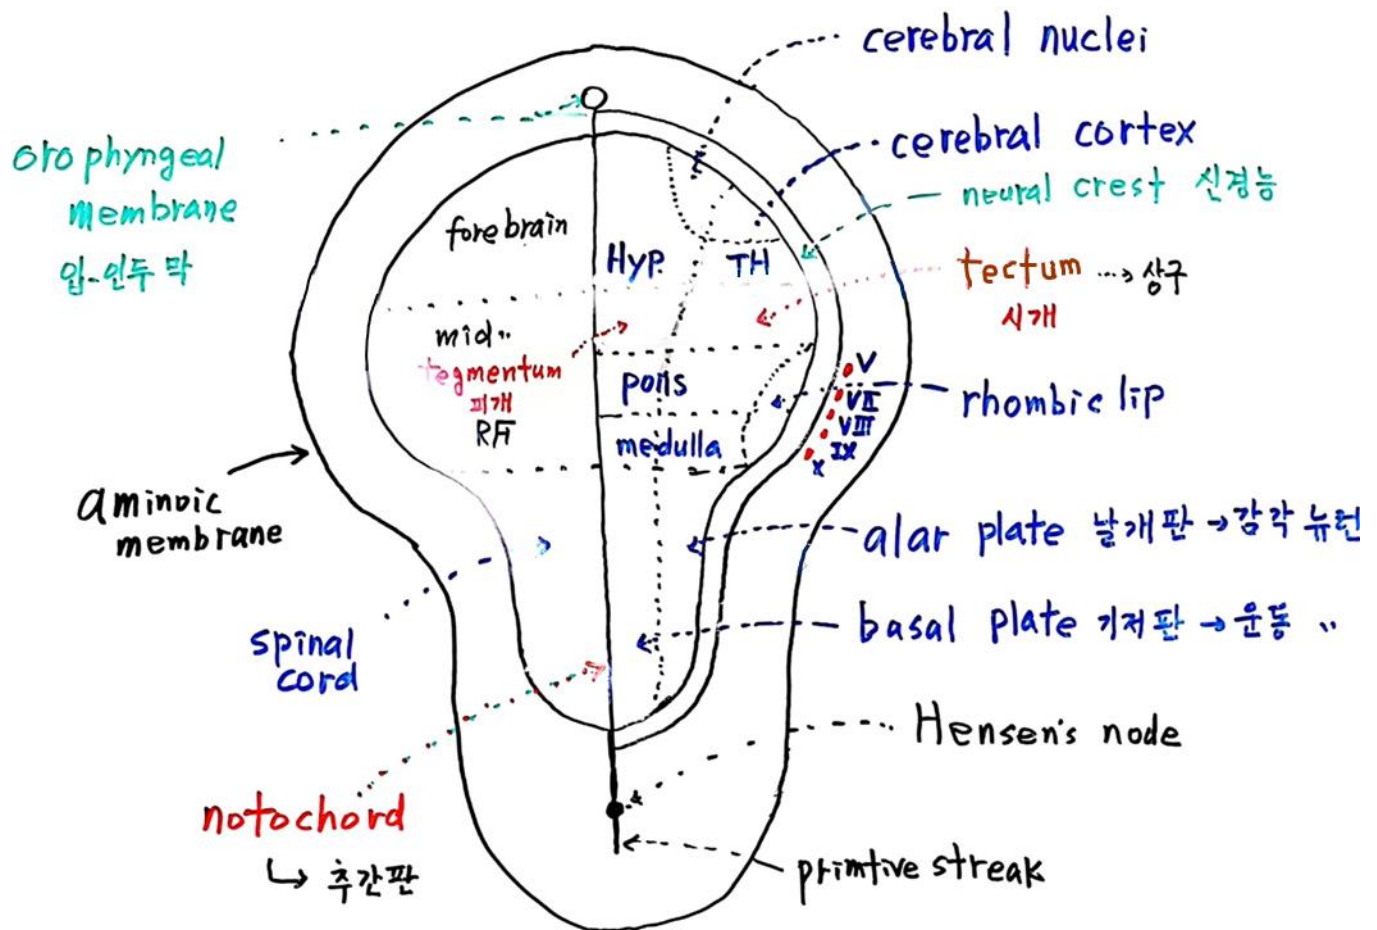 cerebral nuclei
cerebral cortex
neural crest 신경능
oro phyngeal
membrane
입-인두 막
forebrain
Hyp. TH
tectum → 상구
시개
mid〃
tegmentum
피개
RF
pons
medulla
V
VII
VIII
IX
X
rhombic lip
aminoic
membrane
alar plate 날개판 → 감각 뉴런
basal plate 기저판 → 운동 〃
spinal
cord
Hensen's node
notochord
↳ 추간판
primtive streak